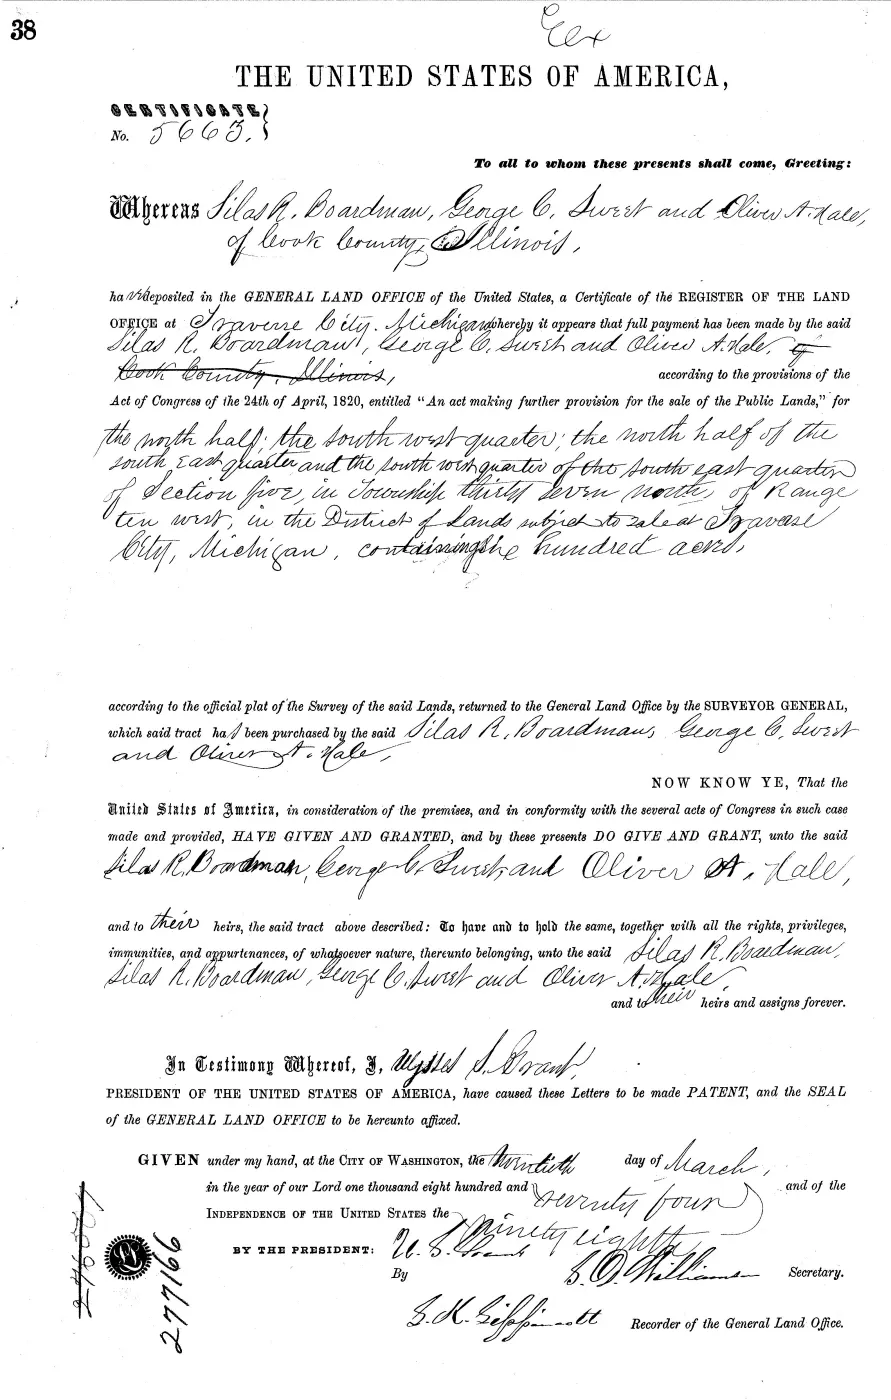 38
Ex
THE UNITED STATES OF AMERICA,
CERTIFICATE
No. 5663.
To all to whom these presents shall come, Greeting:
Whereas Silas R. Boardman, George C. Sweet and Oliver A. Hale,
of Cook County, Illinois,
ha ve deposited in the GENERAL LAND OFFICE of the United States, a Certificate of the REGISTER OF THE LAND
OFFICE at Traverse City. Michigan whereby it appears that full payment has been made by the said
Silas R. Boardman, George C. Sweet and Oliver A. Hale, of
Cook County, Illinois, according to the provisions of the
Act of Congress of the 24th of April, 1820, entitled “An act making further provision for the sale of the Public Lands,” for
the north half; the south west quarter; the north half of the
south East quarter and the south west quarter of the south east quarter
of Section five, in Township thirty seven north, of Range
ten west, in the District of Lands subject to sale at Traverse
City, Michigan, containing six hundred acres,
according to the official plat of the Survey of the said Lands, returned to the General Land Office by the SURVEYOR GENERAL,
which said tract has been purchased by the said Silas R. Boardman, George C. Sweet
and Oliver A. Hale,
NOW KNOW YE, That the
United States of America, in consideration of the premises, and in conformity with the several acts of Congress in such case
made and provided, HAVE GIVEN AND GRANTED, and by these presents DO GIVE AND GRANT, unto the said
Silas R. Boardman, George C. Sweet, and Oliver A. Hale,
and to their heirs, the said tract above described: To have and to hold the same, together with all the rights, privileges,
immunities, and appurtenances, of whatsoever nature, thereunto belonging, unto the said Silas R. Boardman,
Silas R. Boardman, George C. Sweet and Oliver A. Hale,
and to their heirs and assigns forever.
In Testimony Whereof, I, Ulysses S. Grant,
PRESIDENT OF THE UNITED STATES OF AMERICA, have caused these Letters to be made PATENT, and the SEAL
of the GENERAL LAND OFFICE to be hereunto affixed.
GIVEN under my hand, at the CITY OF WASHINGTON, the twentieth day of March,
in the year of our Lord one thousand eight hundred and seventy four and of the
INDEPENDENCE OF THE UNITED STATES the ninety eighth
BY THE PRESIDENT: U. S. Grant
By S. D. Williamson Secretary.
S. K. Lippincott Recorder of the General Land Office.
277166